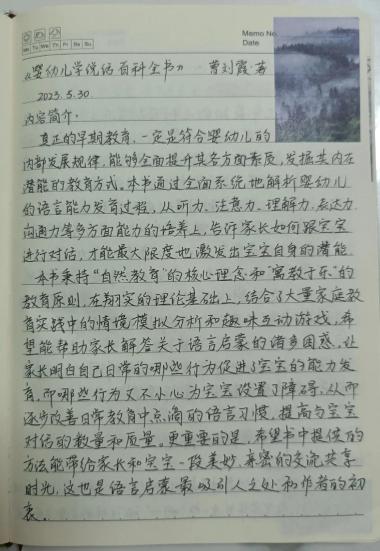 Memo No.
Mo Tu We Th Fr Sa Su
Date
《婴幼儿学说话百科全书》 曹刘霞 著
2023.5.30.
内容简介:
真正的早期教育,一定是符合婴幼儿的
内部发展规律,能够全面提升其各方面素质,发掘其内在
潜能的教育方式。本书通过全面系统地解析婴幼儿
的语言能力发育过程,从听力、注意力、理解力、表达力、
沟通力等多方面能力的培养上,告诉家长如何跟宝宝
进行对话,才能最大限度地激发出宝宝自身的潜能。
本书秉持“自然教育”的核心理念和“寓教于乐”的
教育原则,在翔实的理论基础上,结合了大量家庭教
育实践中的情境模拟分析和趣味互动游戏,希
望能帮助家长解答关于语言启蒙的诸多困惑,让
家长明白自己日常的哪些行为促进了宝宝的能力发
育,而哪些行为又不小心为宝宝设置了障碍,从而
逐步改善日常教育中点滴的语言习惯,提高与宝宝
对话的数量和质量。更重要的是,希望书中提供的
方法能带给家长和宝宝一段美妙、亲密的交流共享
时光,这也是语言启蒙最吸引人之处和作者的初
衷。